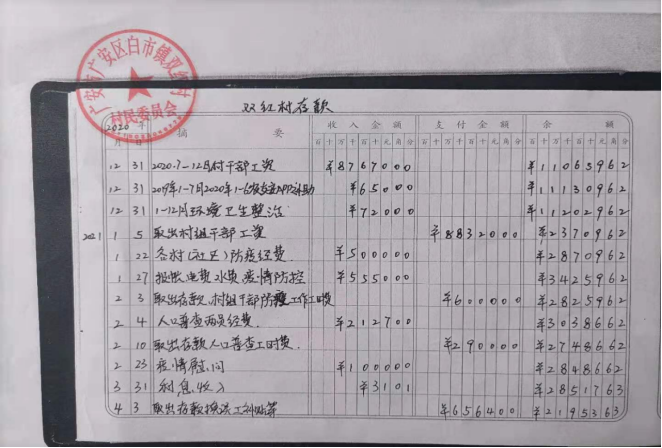 广安市广安区白市镇双红村
村民委员会
双红村存款
2020年 摘要 收入金额 支付金额 余额
月 日 百十万千百十元角分 百十万千百十元角分 百十万千百十元角分
12 31 2020.7-12月村干部工资 ¥8767000 ¥11065962
12 31 2019年1-7月2020年1-6 APP补助 ¥65000 ¥11130962
12 31 1-12月环境卫生整治 ¥72000 ¥11202962
2021 1 5 取出村组干部工资 ¥8832000 ¥2370962
1 22 各村(社区)防疫经费 ¥500000 ¥2870962
1 27 报账电费水费疫情防控 ¥555000 ¥3425962
2 3 取出存款,村组干部防疫工作工时费 ¥600000 ¥2825962
2 4 人口普查两员经费. ¥212700 ¥3038662
2 10 取出存款人口普查工时费. ¥290000 ¥2748662
2 23 疫情慰问 ¥100000 ¥2848662
3 31 利息收入 ¥3101 ¥2851763
4 3 取出存款 误工补贴等 ¥656400 ¥2195363